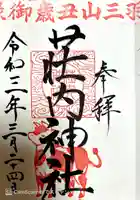 羽三山丑歳御
奉拝
荘内神社
令和三年三月二十四日